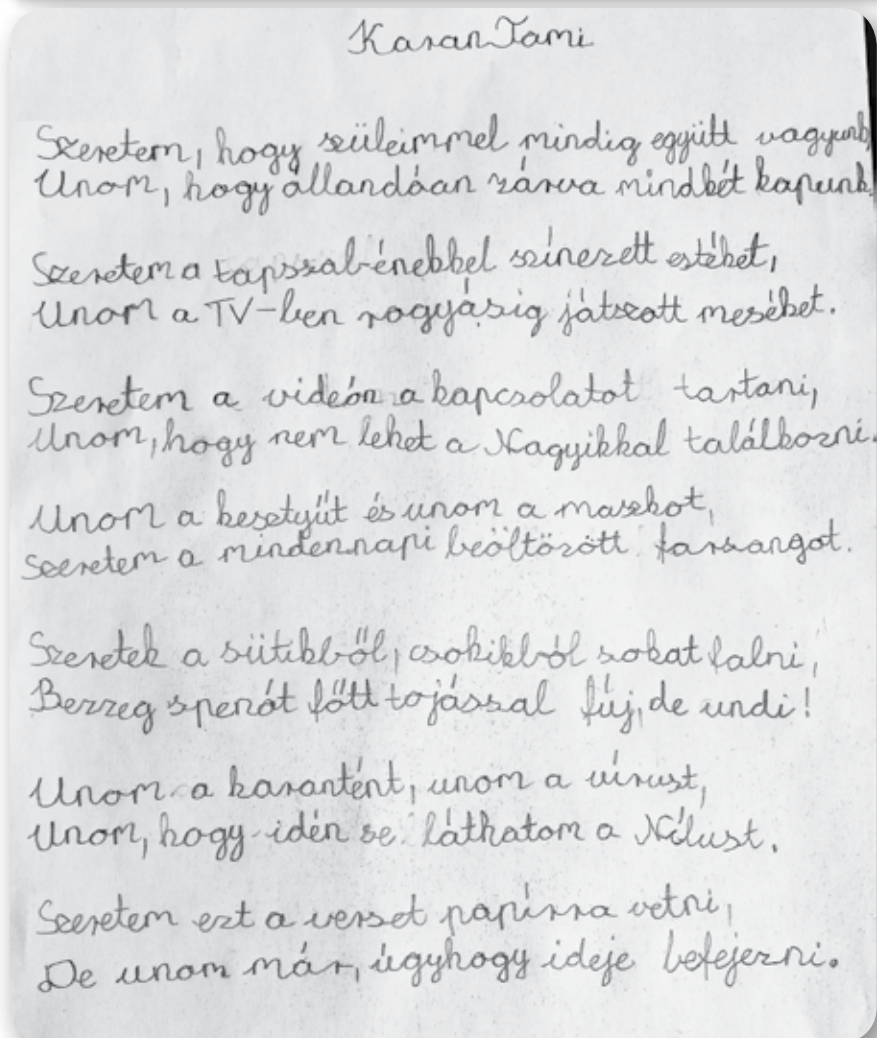 KaranTami
Szeretem, hogy szüleimmel mindig együtt vagyunk,
Unom, hogy állandóan zárva mindkét kapunk.
Szeretem a tapssal-énekkel színezett estéket,
Unom a TV-ben rogyásig játszott meséket.
Szeretem a videón a kapcsolatot tartani,
Unom, hogy nem lehet a Nagyikkal találkozni.
Unom a kesztyűt és unom a maszkot,
Szeretem a mindennapi beöltözött farsangot.
Szeretek a sütikből, csokikból sokat falni,
Bezzeg spenót főtt tojással fúj, de undi!
Unom a karantént, unom a vírust,
Unom, hogy idén se láthatom a Nílust.
Szeretem ezt a verset papírra vetni,
De unom már, úgyhogy ideje befejezni.